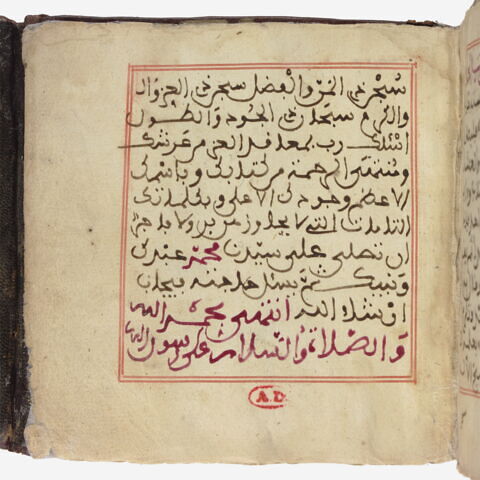 سبحن ذي المن والفضل سبحن ذي العز وال
والكرم سبحان ذي الجود والطول
اسئلك رب بمعاقد العز من عرشك
ومنتهى الرحمة من كتابك وباسمك
الاعظم وجدك الاعلى وبكلماتك
التامات التي لا يجاوزهن بر ولا فاجر
ان تصلي على سيدنا محمد عبدك
ونبيك ثم يسئل حاجته يجاب
ان شاء الله انتهى بحمد الله
والصلاة والسلام على رسول الله
A.D